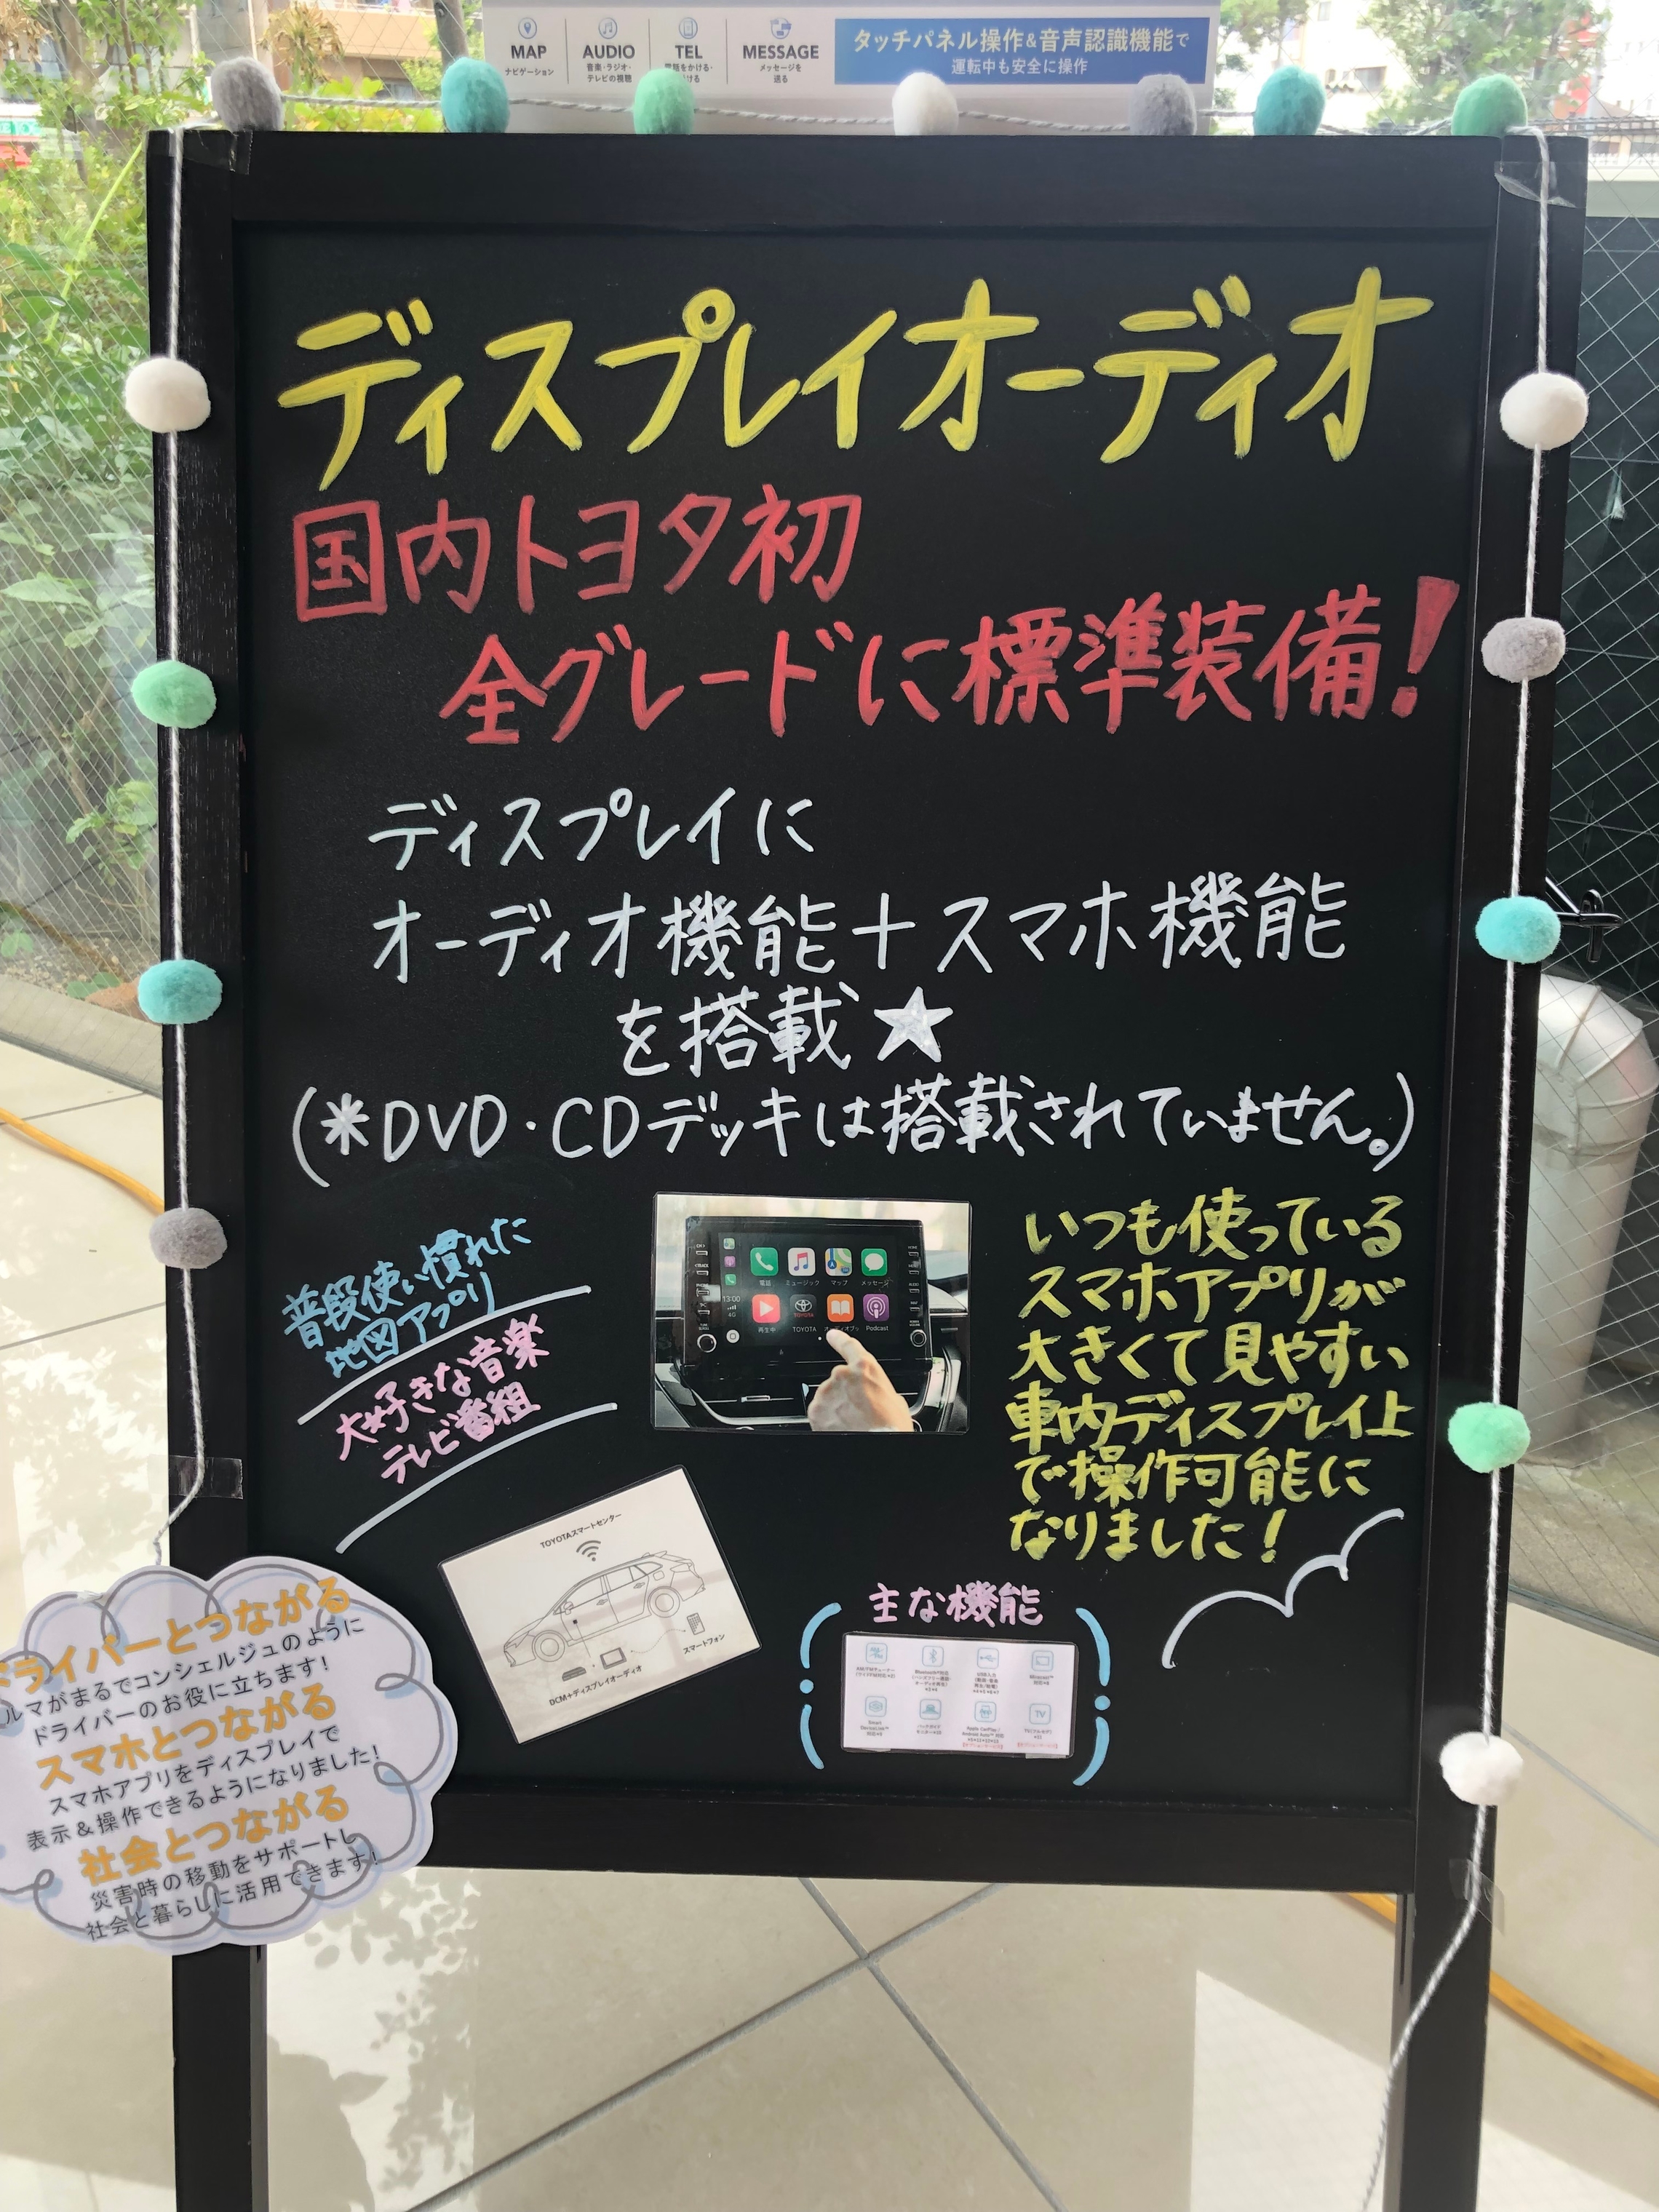 MAP
ナビゲーション
AUDIO
音楽・ラジオ・
テレビの視聴
TEL
MESSAGE
メッセージを
送る
タッチパネル操作&音声認識機能で
運転中も安全に操作
ディスプレイオーディオ
国内トヨタ初
全グレードに標準装備!
ディスプレイに
オーディオ機能+スマホ機能
を搭載★
(*DVD・CDデッキは搭載されていません。)
普段使い慣れた
地図アプリ
大好きな音楽
テレビ番組
電話
ミュージック
マップ
メッセージ
13:00
4G
再生中
TOYOTA
Podcast
いつも使っている
スマホアプリが
大きくて見やすい
車内ディスプレイ上
で操作可能に
なりました!
TOYOTAスマートセンター
スマートフォン
DCM+ディスプレイオーディオ
主な機能
TV
ドライバーとつながる
ルマがまるでコンシェルジュのように
ドライバーのお役に立ちます!
スマホとつながる
スマホアプリをディスプレイで
表示&操作できるようになりました!
社会とつながる
災害時の移動をサポートし
社会と暮らしに活用できます!